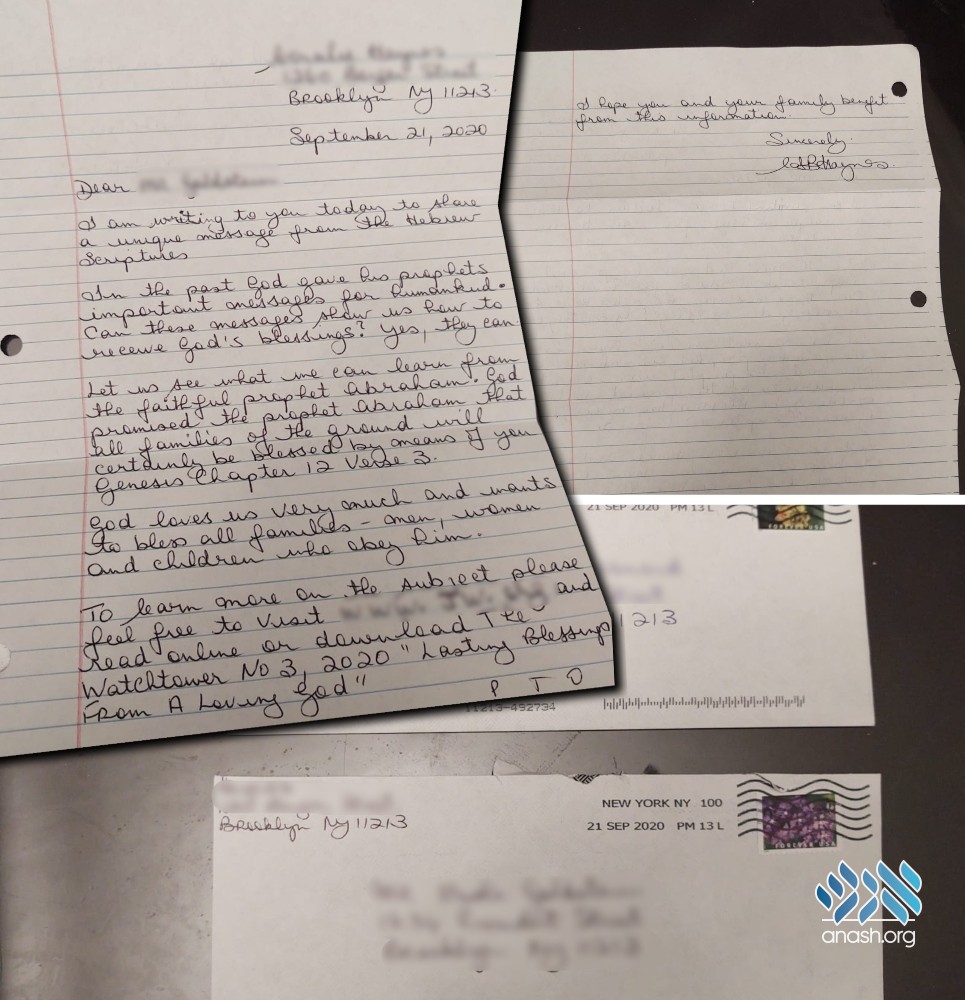 Brooklyn Ny 11213
September 21, 2020
Dear
I am writing to you today to share
a unique message from the Hebrew
Scriptures
In the past God gave his prophets
important messages for humankind.
Can these messages show us how to
receive God's blessings? Yes, they can
Let us see what we can learn from
the faithful prophet Abraham. God
promised the prophet Abraham that
all families of the ground will
certainly be blessed by means of you
Genesis Chapter 12 Verse 3.
God loves us very much and wants
to bless all families - men, women
and children who obey him.
To learn more on the subject please
feel free to visit and
Read online or download The
Watchtower No 3, 2020 "Lasting Blessings
From A Loving God"
P T O
I hope you and your family benefit
from this information.
Sincerely
21 SEP 2020 PM 13 L
FOREVER USA
11213
11213-492734
Brooklyn Ny 11213
NEW YORK NY 100
21 SEP 2020 PM 13 L
FOREVER USA
אנש
anash.org